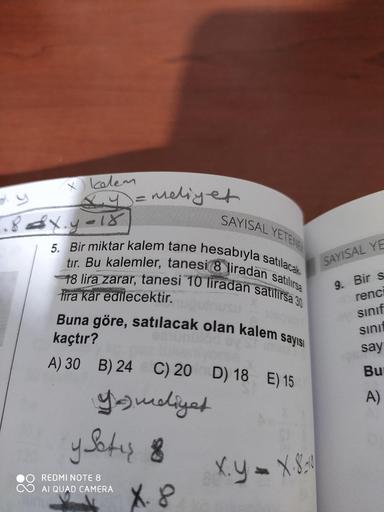 x kalem
. y x.y = maliyet
x.8 - x.y = 18
SAYISAL YETENE
5. Bir miktar kalem tane hesabıyla satılacak-
tır. Bu kalemler, tanesi 8 liradan satılırsa
18 lira zarar, tanesi 10 liradan satılırsa 30
lira kâr edilecektir.
Buna göre, satılacak olan kalem sayısı
kaçtır?
A) 30 B) 24 C) 20 D) 18 E) 15
y → maliyet
y Satış 8
x.y = x.8-18
x.8
SAYISAL YE
9. Bir s
renci
sınıf
sınıf
say
Bu
A)
REDMI NOTE 8
AI QUAD CAMERA